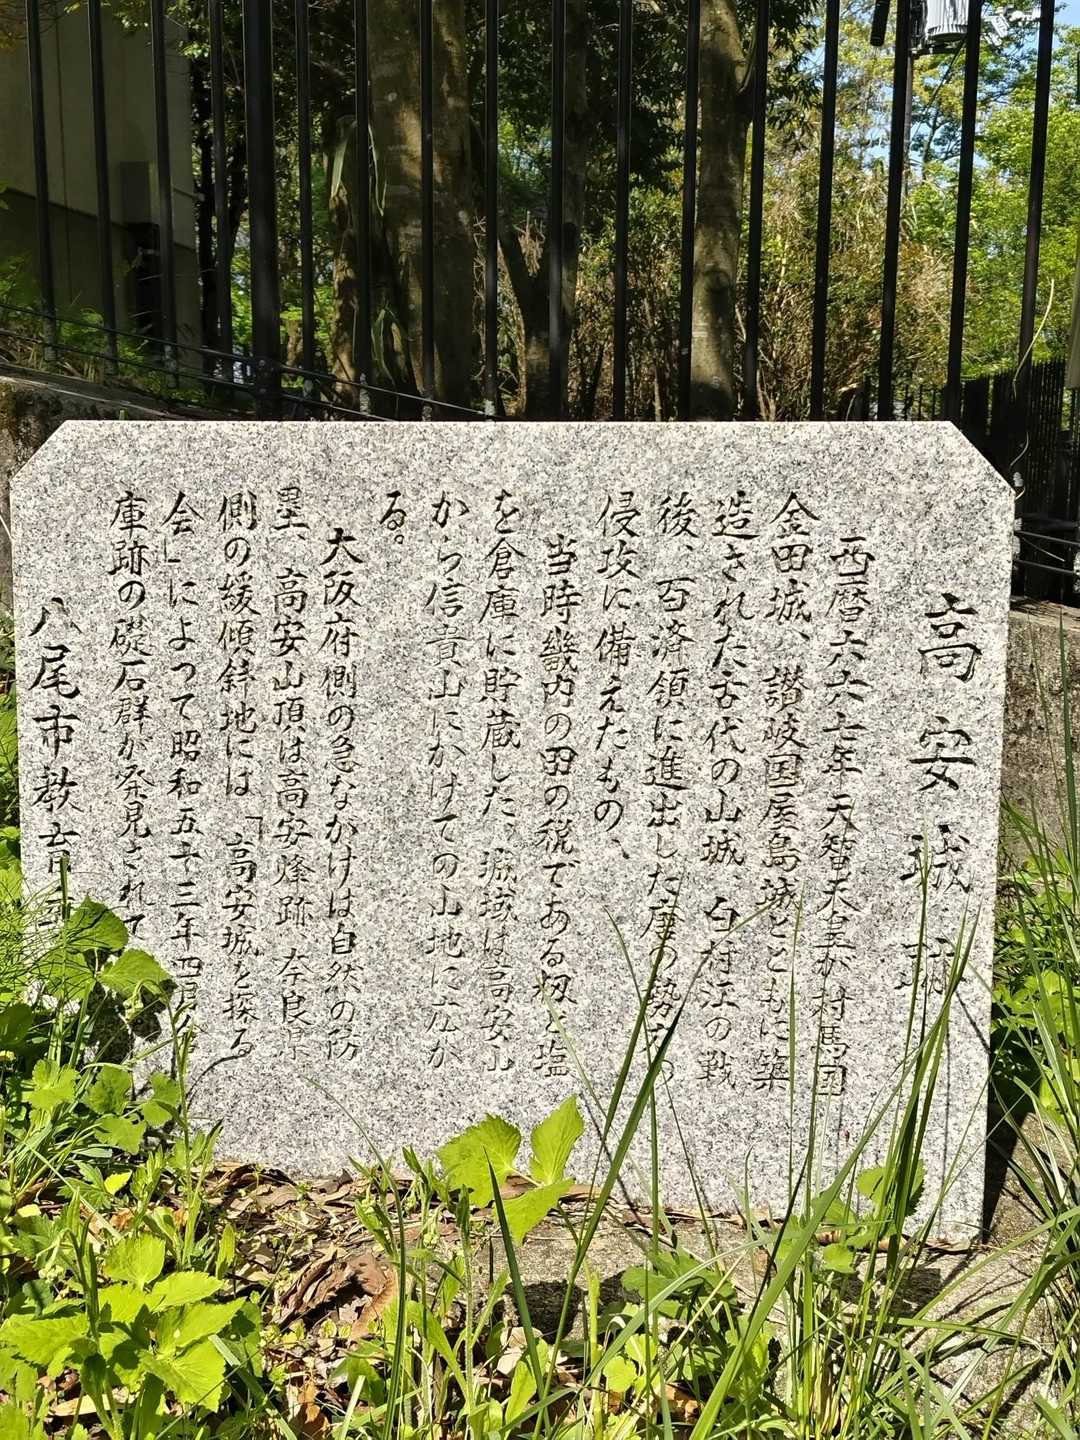 高安城跡
西暦六六七年天智天皇が対馬国
金田城、讃岐国屋島城とともに築
造された古代の山城、白村江の戦
後、百済領に進出した唐の勢力の
侵攻に備えたもの、
当時畿内の田の税である籾と塩
を倉庫に貯蔵した。城域は高安山
から信貴山にかけての山地に広が
る。
大阪府側の急ながけは自然の防
塁、高安山頂は高安烽跡、奈良県
側の緩傾斜地には「高安城を探る
会」によって昭和五十三年四月
庫跡の礎石群が発見されて
八尾市教育